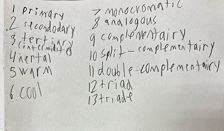 1 primary
2 secondodary
3 tertiary
intermediate
4 nertal
5 warm
6 cool
7 monocromatic
8 analagous
9 complementairy
10 split-complementairy
11 double-complementairy
12 triad
13 triade